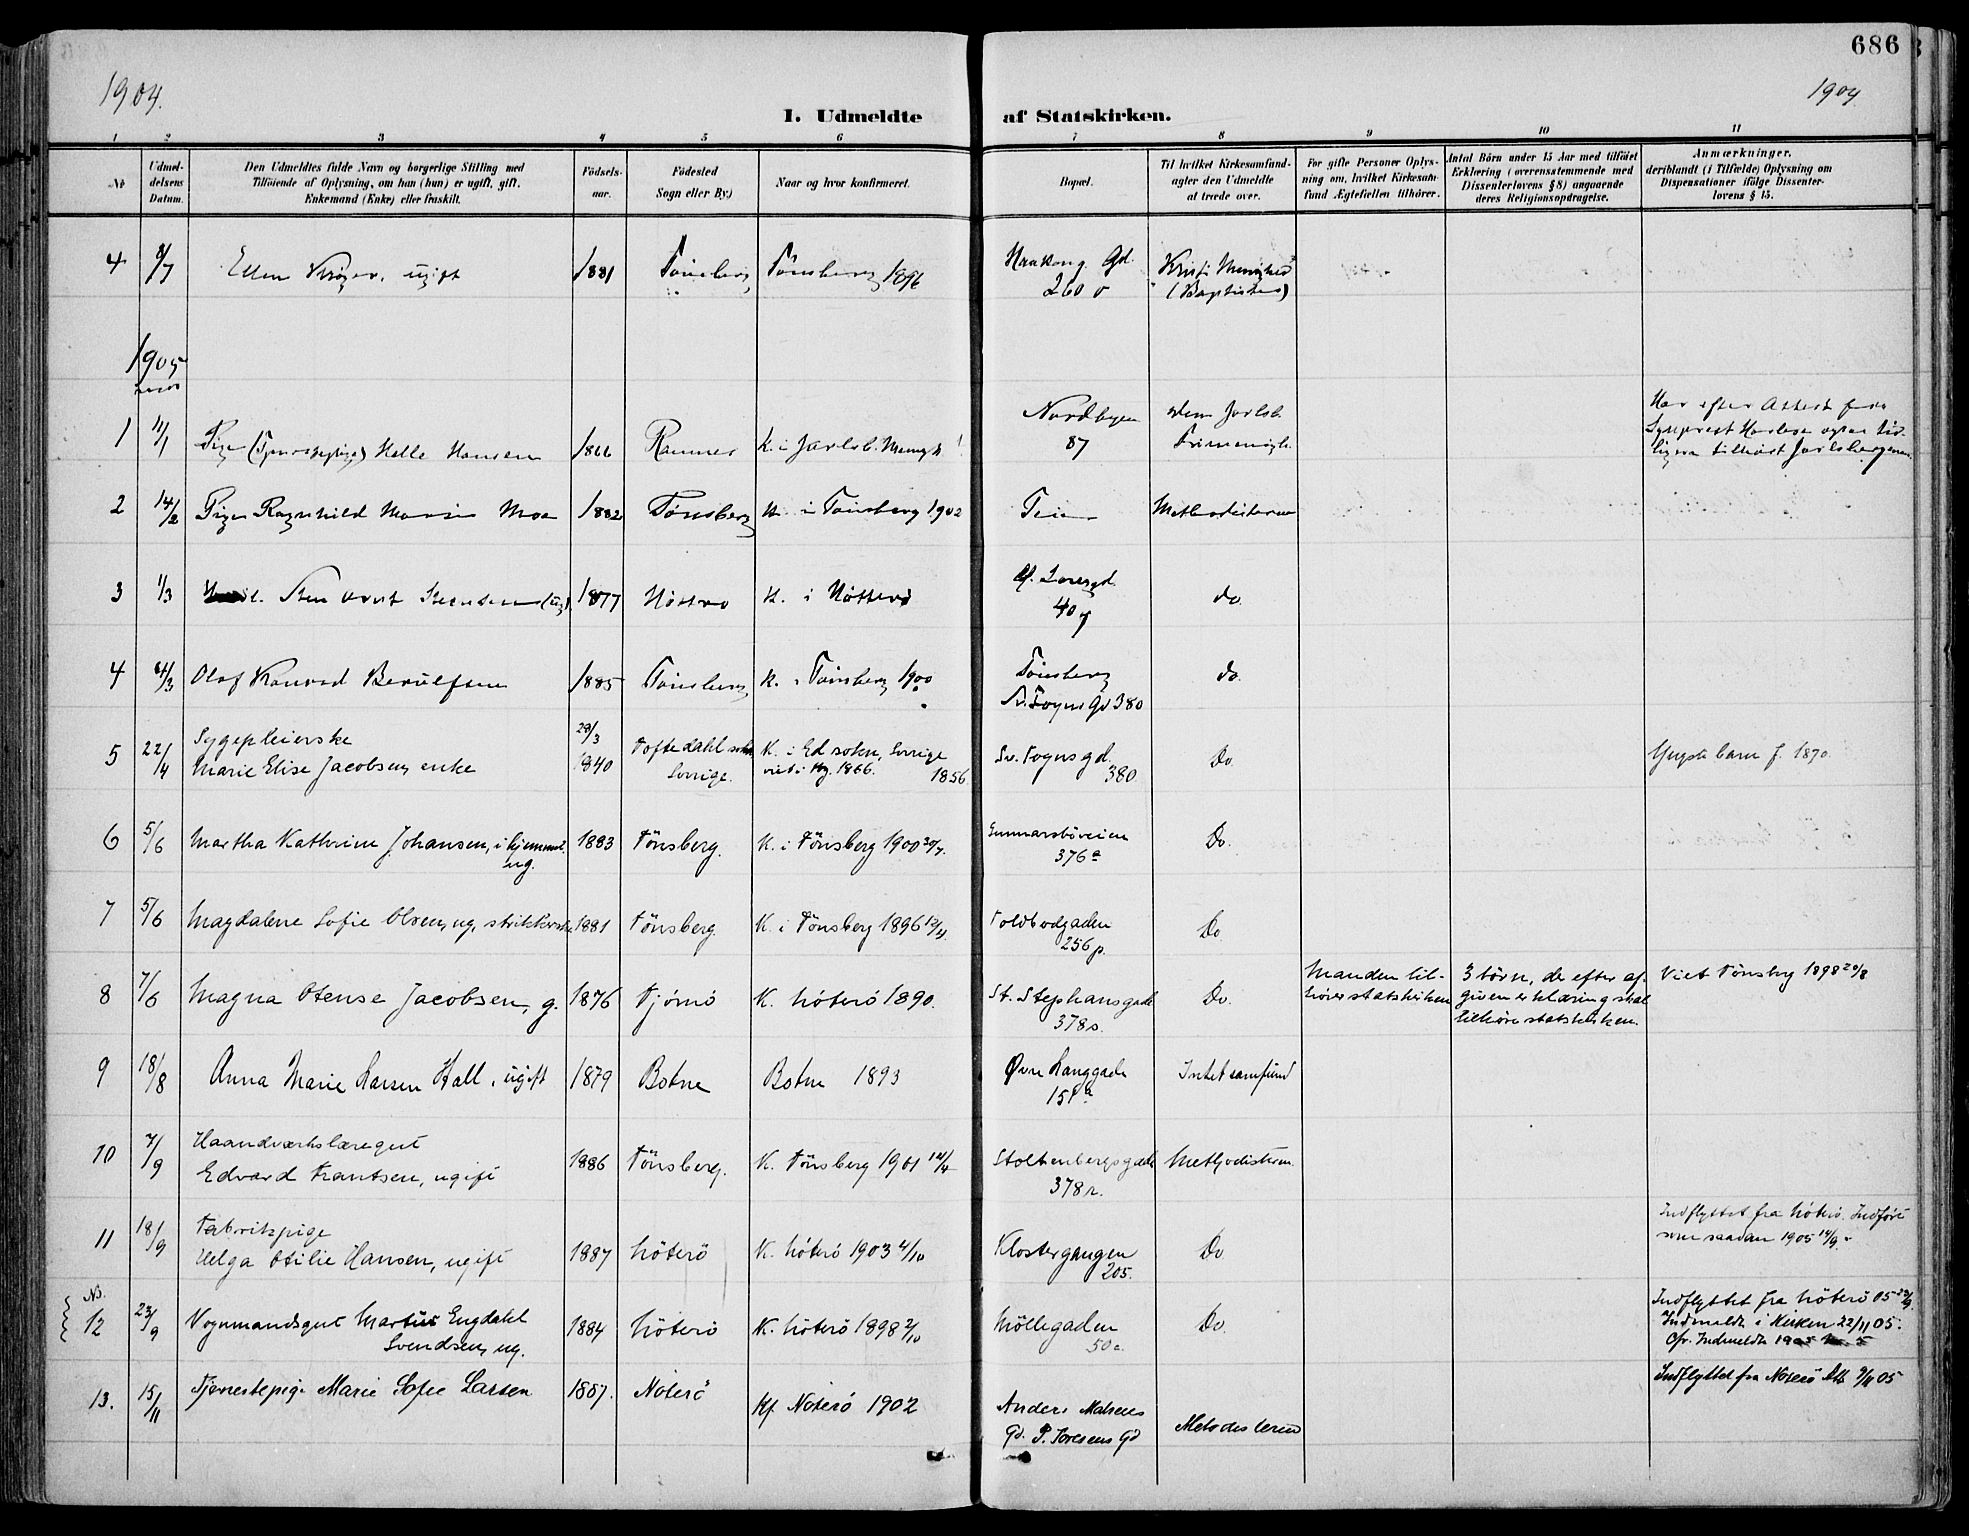 686
1904.
1904
I. Udmeldte af Statskirken.
1 2 3 4 5 6 7 8 9 10 11
No
Udmel-
delsens
Datum.
Den Udmeldtes fulde Navn og borgerlige Stilling med
Tilföiende af Oplysning, om han (hun) er ugift, gift.
Enkemand (Enke) eller fraskilt.
Födsels-
aar.
Födested
Sogn eller By.)
Naar og hvor konfirmeret.
Bopæl.
Til hvilket Kirkesamfund-
agter den Udmeldte
at træde over.
For gifte Personer Oplys-
ning om, hvilket Kirkesam-
fund Ægtefællen tilhörer.
Antal Börn under 15 Aar med tilföiet
Erklæring (overensstemmende med
Dissenterlovens § 8) angaaende
deres Religionsopdragelse.
Anmærkninger,
deriblandt (i Tilfælde) Oplysning om
Dispensationer ifölge Dissenter-
lovens § 15.
4 8/7 Ellen Kröyer, ugift 1881 Tönsberg Tönsberg 1896 Haakong. Gd. 260 v Kristi Menighed (Baptister)
1905
1 11/1 Pige Helle Hansen 1866 Ramnes K. i Jarlsb. Menigh. Nordbyen 87 den Jarlsb. Frimenigh.
Har efter Attest fra
2 14/2 Pige Ragnhild Marie Moe 1882 Tönsberg K. i Tönsberg 1902 Teie Methodisterne
3 1/3 (ug). 1877 Nötterö K. i Nötterö 40 y do.
4 4/3 Olaf Konrad Berulfsen 1885 Tönsberg K. i Tönsberg 1900 Tönsberg
Sv. Foyns Gd 380 do.
5 22/4 Sygepleierske
Marie Elise Jacobsen, enke 29/3 1840 Toftedahl sokn, Sverige. K. i Ed sokn, Sverige 1856
viet i 1866. Sv. Foyns gd. 380 Do. Yngste barn f. 1870.
6 5/6 Martha Kathrine Johansen, i hjemmet. ug. 1883 Tönsberg. K. i Tönsberg 1900 Gunnarsböveien 376 a Do.
7 5/6 Magdalene Sofie Olsen, ug, strikkerske 1881 Tönsberg. K. i Tönsberg 1896 12/4. Toldbodgaden 256 p. Do
8 7/6 Magna Otense Jacobsen, g. 1876 Tjömö K. Nöterö 1890. St. Stephansgade 378 s. Do.
Manden til-
hörer statskirken
3 börn, de efter af-
given erklæring skal
tilhöre statskirken.
Viet Tönsbrg 1898 20/8
9 18/8 Anna Marie Larsen Hall, ugift 1879 Botne Botne 1893 Øvre Langgade 151 a Intet samfund
10 7/9 Haandværkslæregut
Edvard Frantsen, ugift 1886 Tönsberg. K. Tönsberg 1901 14/4 Stoltenbergsgade 378 r. Methodisterne.
11 18/9 Fabrikpige
Helga Otilie Hansen, ugift 1887 Nöterö K. Nöterö 1903 4/10 Klostergangen 205. Do
Indflyttet fra Nöterö. Indfört
som saadan 1905 14/9.
NB.
12 23/9 Vognmandsgut Martin Engdahl
Svendsen, ug. 1884 Nöterö K. Nöterö 1898 2/10 Möllegaden 50 c. Do.
Indflyttet fra Nöterö 05 23/9.
Indmeldt i Kirken 22/11 05.
Cfr. Indmeldte 1905 No. 5
13. 15/11 Tjenestepige Marie Sofie Larsen 1887. Nöterö Kf. Nöterö 1902 Anders Madsens
Gd. P. Sörensens Gd Metodisterne
Indflyttet fra Nöterö Att. 9/11 05